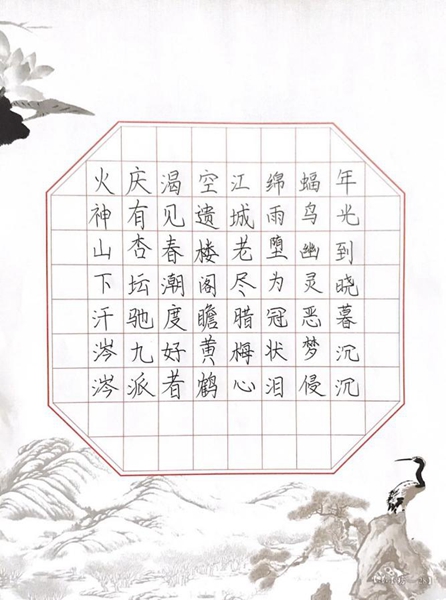 年光到晓暮沉沉
蝠鸟幽灵恶梦侵
绵雨堕为冠状泪
江城老尽腊梅心
空遗楼阁瞻黄鹤
渴见春潮度好者
庆有杏坛驰九派
火神山下汗涔涔